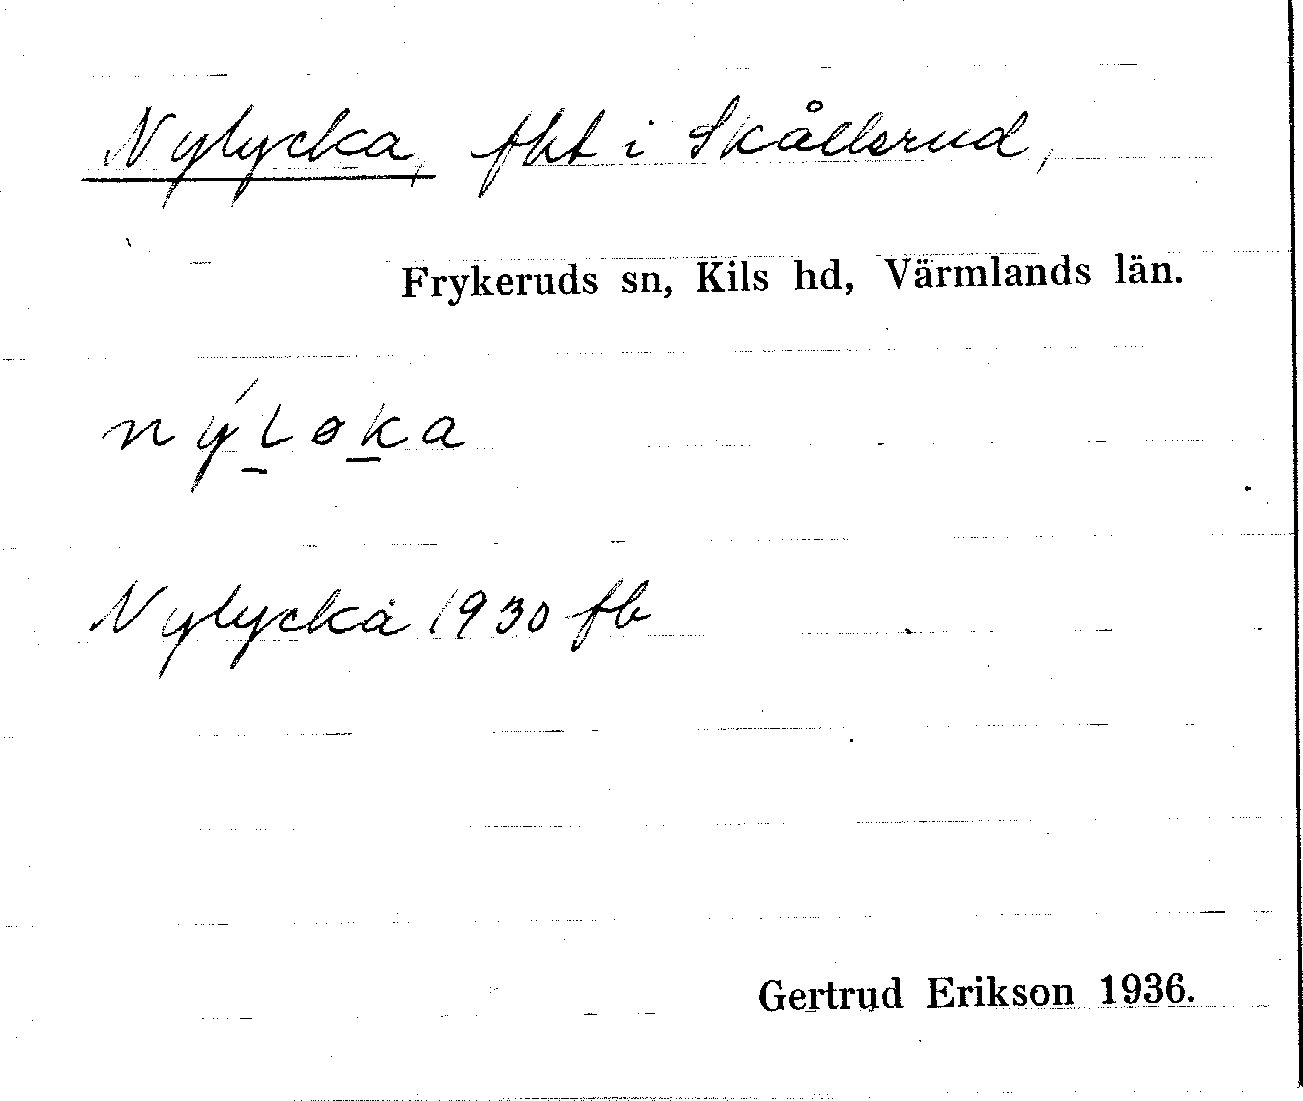 Nylycka, fht i Skållerud,
Frykeruds sn, Kils hd, Värmlands län.
nýløka
Nylycka 1930 fb
Gertrud Erikson 1936.